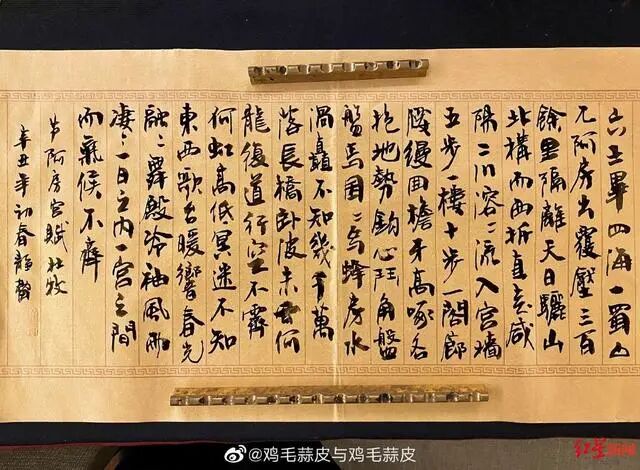 六王畢四海一蜀山
兀阿房出覆壓三百
餘里隔離天日驪山
北構而西折直走咸
陽二川溶〻流入宮墻
五步一樓十步一閣廊
腰縵回檐牙高啄各
抱地勢鈎心鬥角盤
盤焉囷〻焉蜂房水
渦矗不知幾千萬
落長橋臥波未雲何
龍復道行空不霽
何虹高低冥迷不知
東西歌台暖響春光
融〻舞殿冷袖風雨
淒〻一日之內一宮之間
而氣候不齊
节阿房宮賦杜牧
辛丑年初春
@鸡毛蒜皮与鸡毛蒜皮
红星